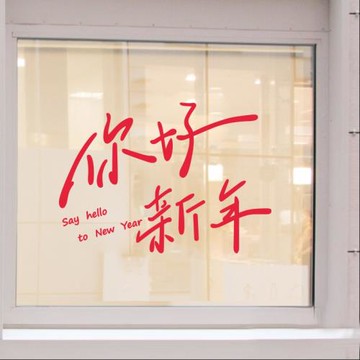 你好
新年
Say hello
to New Year